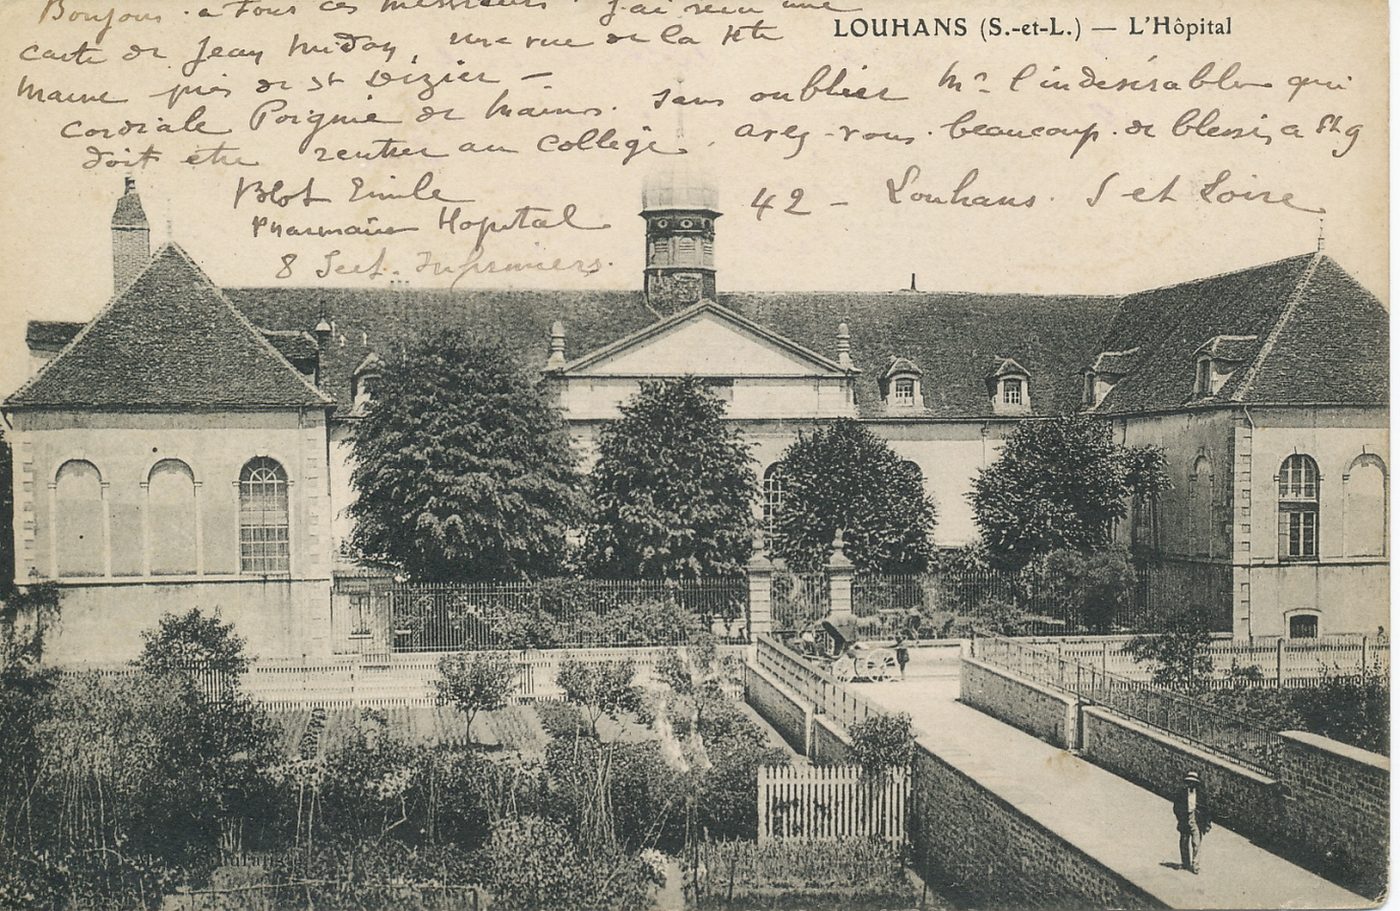 Bonjour à tous ces messieurs. J'ai reçu une
LOUHANS (S.-et-L.) — L'Hôpital
carte de Jean Midoy, une vue de la Hte
Marne près de St Dizier —
cordiale Poignée de Mains. sans oublier Mr l'indésirable qui
doit être rentrer au collège. avez-vous beaucoup de blessés a
Blot Emile 42 - Louhans. S et Loire
Pharmacie Hopital
8 Sect. Infirmiers.